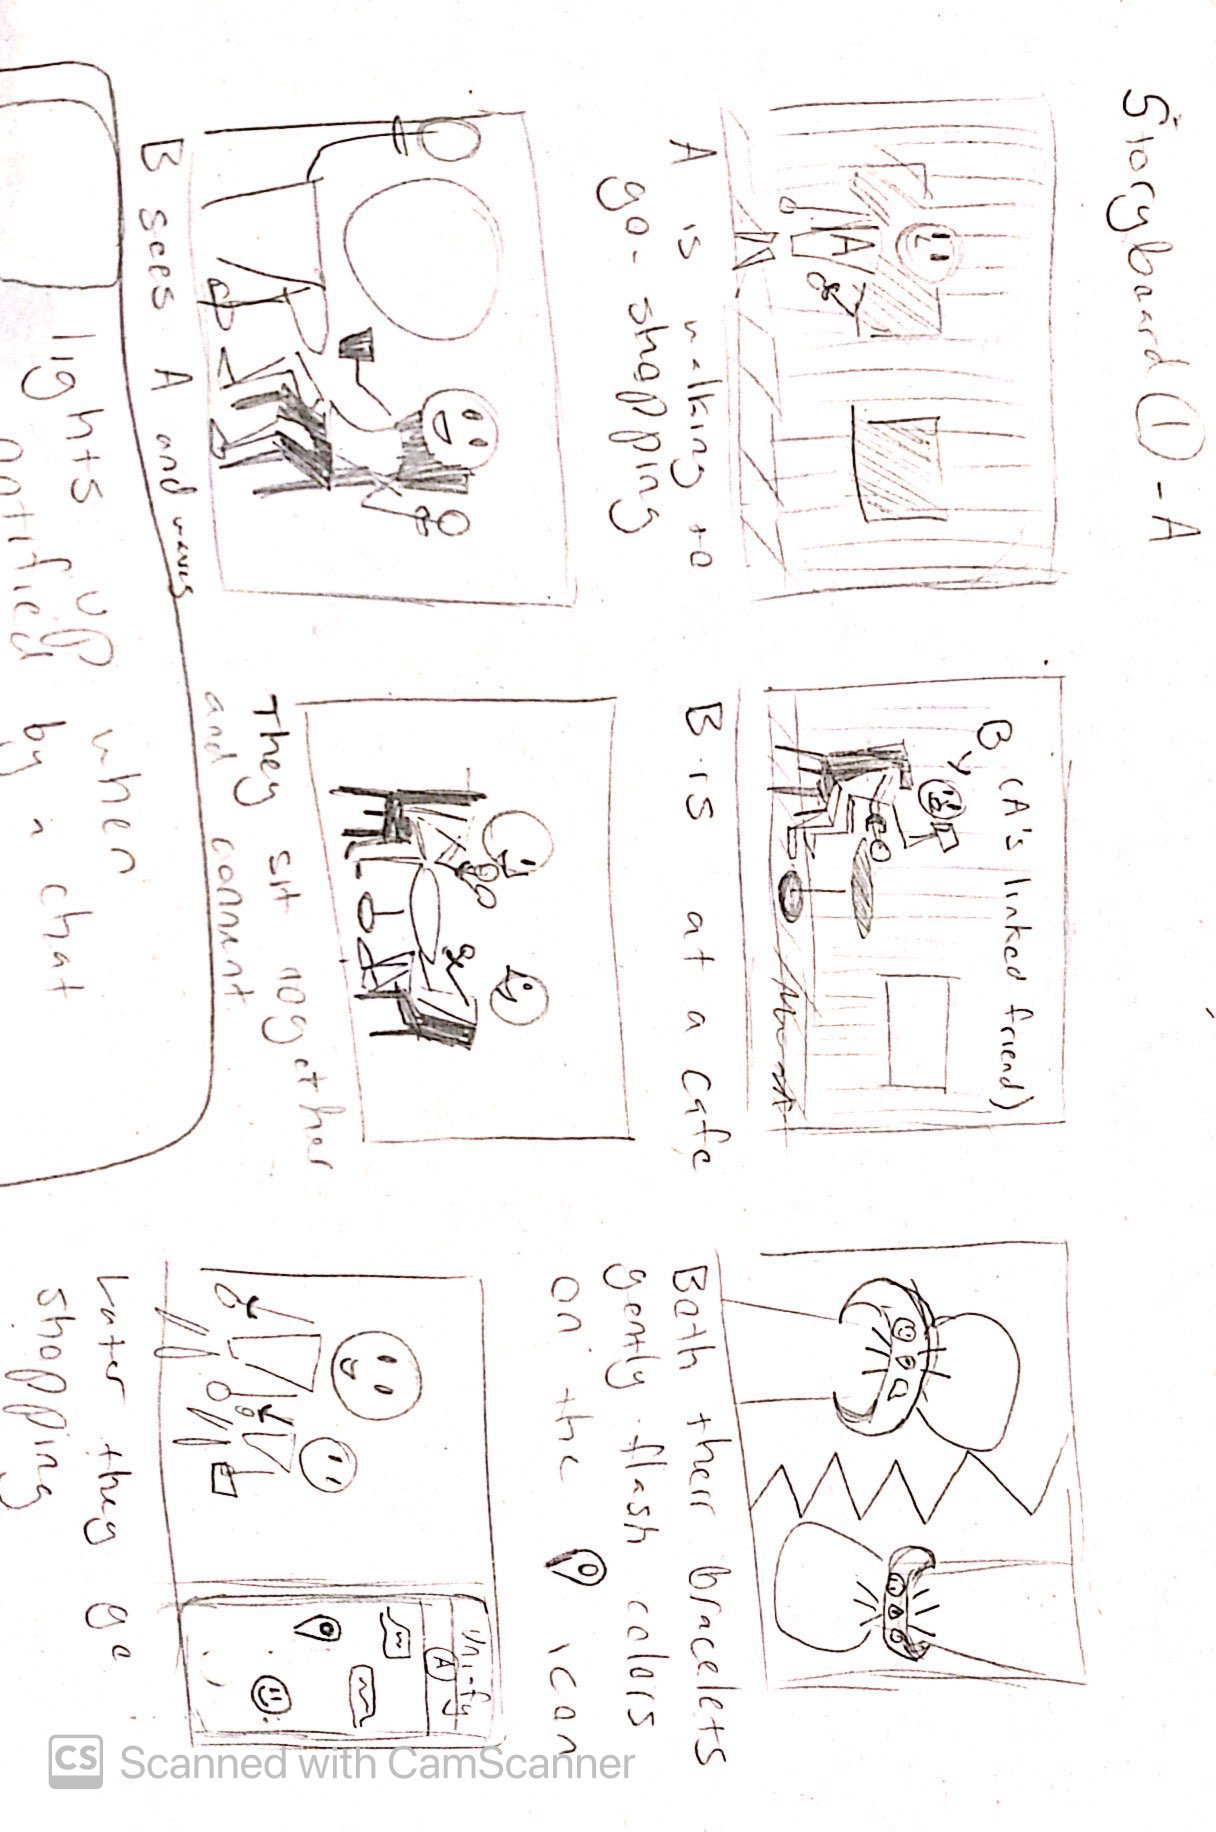 Storyboard 1 - A
A
A is walking to
go shopping
B (A's linked friend)
B is at a cafe
Both their bracelets
gently flash colors
on the icon
B sees A and waves
They sit together
and connect
Unify
A
Later they go
shopping
lights up when
notified by a chat
CS Scanned with CamScanner